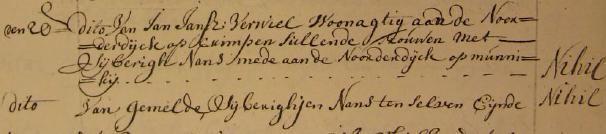 den 20 dito Van Jan Jansz: Verwiel Woonagtig aan de Noor=
=derdijck op Crimpen sullende Trouwen met
Sijberigh Nans mede aan de Noorderdijck op munni=
=kij Nihil
dito Van gemelde Sijberighjen Nans ten selven Eijnde Nihil